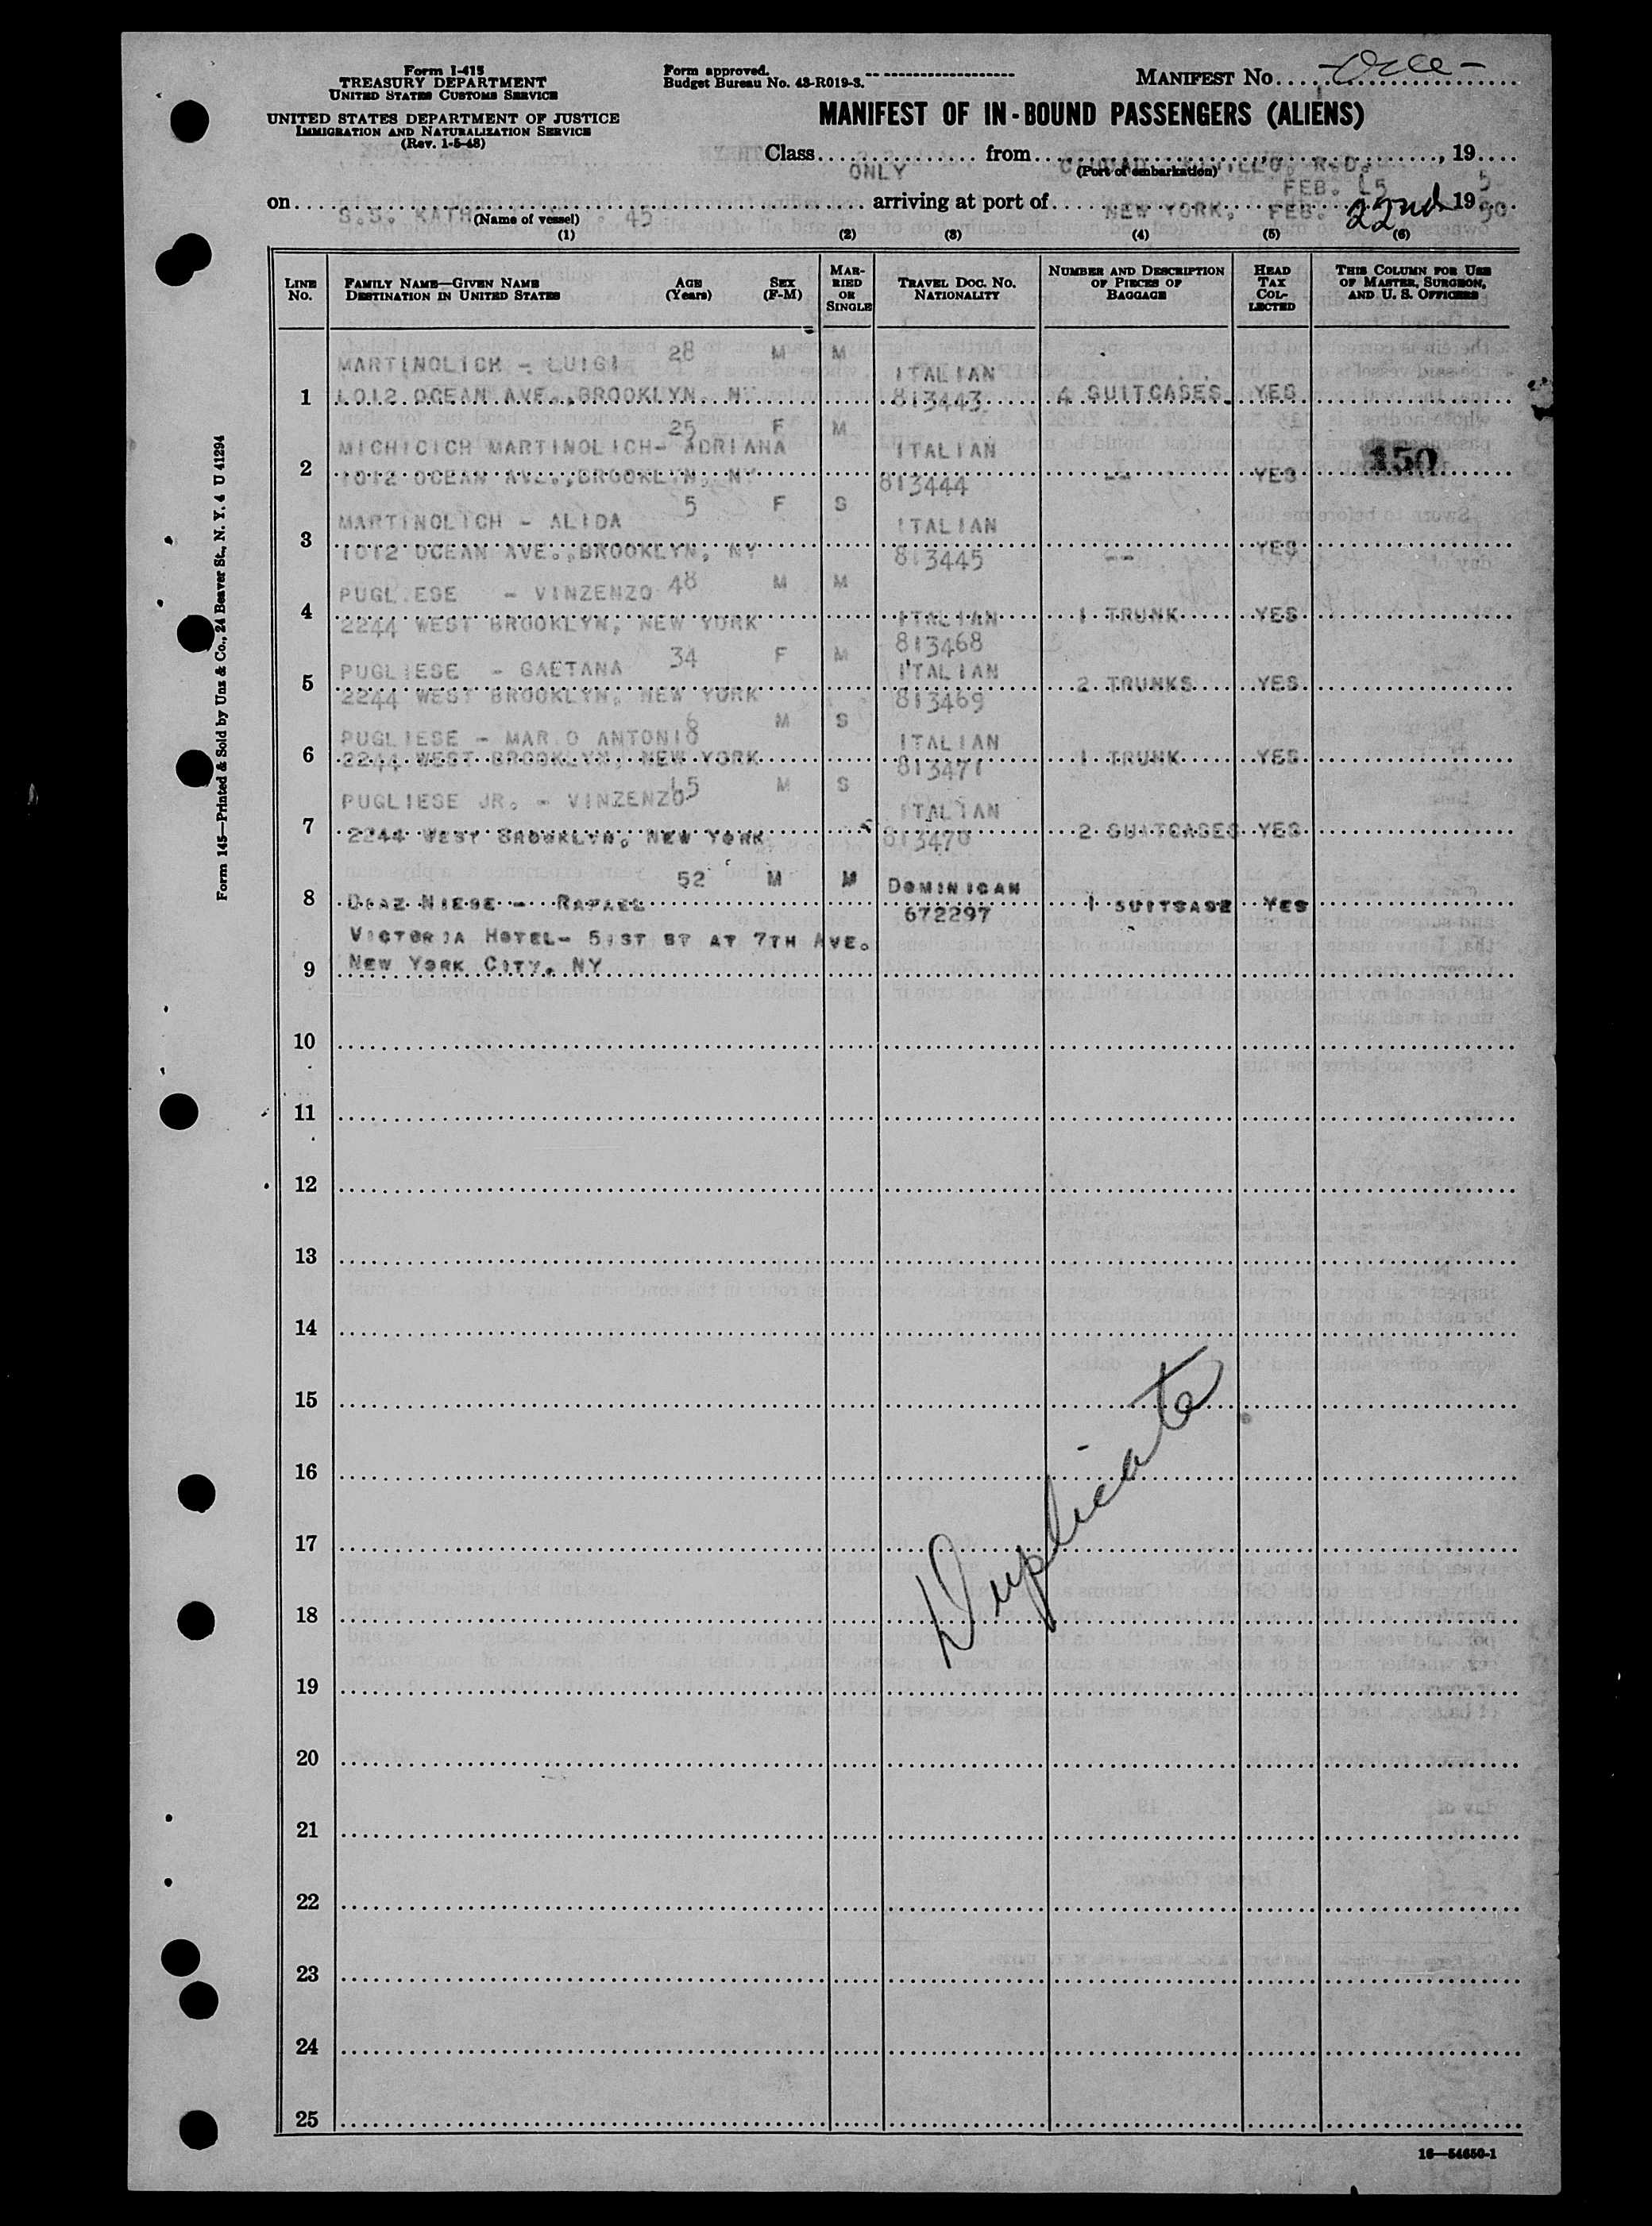 Form I-415
TREASURY DEPARTMENT
UNITED STATES CUSTOMS SERVICE
UNITED STATES DEPARTMENT OF JUSTICE
IMMIGRATION AND NATURALIZATION SERVICE
(Rev. 1-5-48)
Form approved.
Budget Bureau No. 43-R019-3.
MANIFEST No. One
MANIFEST OF IN-BOUND PASSENGERS (ALIENS)
Class ONLY from R.D. FEB. 15, 19 5
(Port of embarkation)
on S.S. KATH 45 arriving at port of NEW YORK, FEB. 22nd 19 50
(Name of vessel)
(1) (2) (3) (4) (5) (6)
LINE NO. FAMILY NAME—GIVEN NAME DESTINATION IN UNITED STATES AGE (Years) SEX (F-M) MARRIED OR SINGLE TRAVEL DOC. NO. NATIONALITY NUMBER AND DESCRIPTION OF PIECES OF BAGGAGE HEAD TAX COLLECTED THIS COLUMN FOR USE OF MASTER, SURGEON, AND U. S. OFFICERS
MARTINOLICH - LUIGI 28 M M ITALIAN
1 1012 OCEAN AVE.,BROOKLYN, NY 813443 4 SUITCASES YES
MICHICICH MARTINOLICH- ADRIANA 25 F M ITALIAN
2 1012 OCEAN AVE.,BROOKLYN, NY 813444 -- YES 150
MARTINOLICH - ALIDA 5 F S ITALIAN
3 1012 OCEAN AVE.,BROOKLYN, NY 813445 -- YES
PUGL ESE - VINZENZO 48 M M
4 2244 WEST BROOKLYN, NEW YORK ITALIAN 813468 1 TRUNK YES
PUGLIESE - GAETANA 34 F M ITALIAN
5 2244 WEST BROOKLYN, NEW YORK 813469 2 TRUNKS YES
PUGLIESE - MAR O ANTONIO 6 M S ITALIAN
6 2244 WEST BROOKLYN, NEW YORK 813471 1 TRUNK YES
PUGLIESE JR. - VINZENZO 15 M S ITALIAN
7 2244 WEST BROOKLYN, NEW YORK 813470 2 SUITCASES YES
52 M M DOMINICAN
8 DIAZ NIESE - RAFAEL 672297 1 SUITCASE YES
VICTORIA HOTEL- 51ST ST AT 7TH AVE.
9 NEW YORK CITY, NY
10
11
12
13
14
15
16
17
18
19
20
21
22
23
24
25
Duplicate
Form 145—Printed & Sold by Unz & Co., 24 Beaver St., N. Y. 4 U 41294
16—54650-1